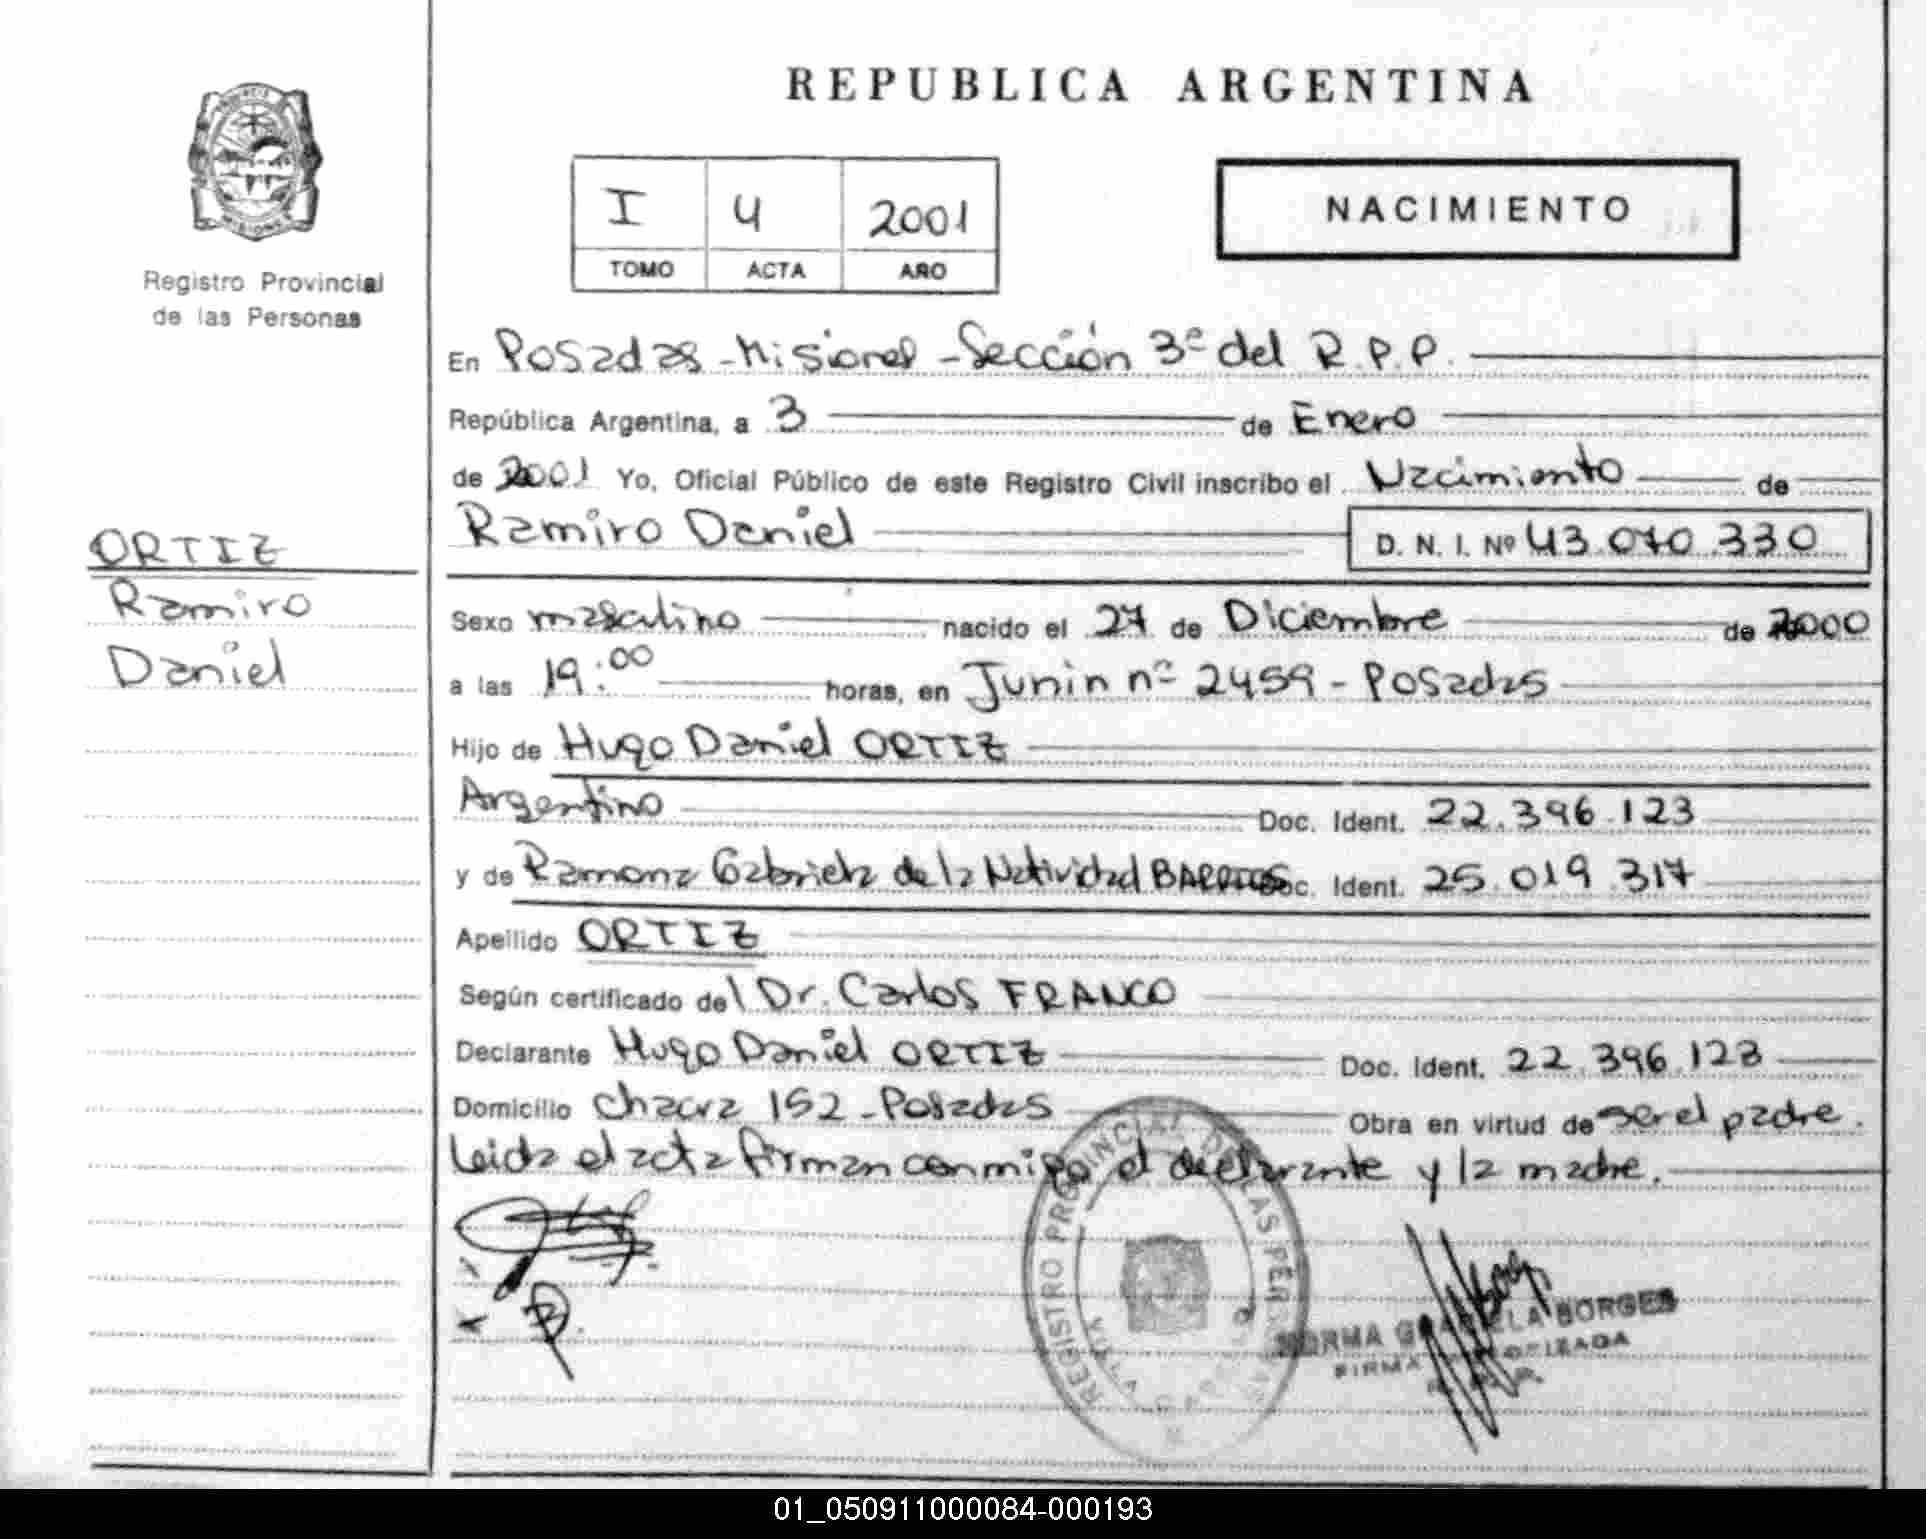 REPUBLICA ARGENTINA
I 4 2001
TOMO ACTA AÑO
NACIMIENTO
Registro Provincial
de las Personas
En Posadas - Misiones - Sección 3ª del R.P.P.
República Argentina, a 3 de Enero
de 2001 Yo, Oficial Público de este Registro Civil inscribo el Nacimiento de
Ramiro Daniel D. N. I. Nº 43.070.330
ORTIZ
Ramiro
Daniel
Sexo masculino nacido el 27 de Diciembre de 2000
a las 19:00 horas, en Junin nº 2459 - Posadas
Hijo de Hugo Daniel ORTIZ
Argentino Doc. Ident. 22.396.123
y de Ramona Gabriela de la Natividad BARRIOS Doc. Ident. 25.019.317
Apellido ORTIZ
Según certificado del Dr. Carlos FRANCO
Declarante Hugo Daniel ORTIZ Doc. Ident. 22.396.123
Domicilio Chacra 152 - Posadas Obra en virtud de ser el padre.
Leida el acta firman conmigo el declarante y la madre.
REGISTRO PROVINCIAL DE LAS PERSONAS
NORMA GRACIELA BORGES
FIRMA AUTORIZADA
01_050911000084-000193